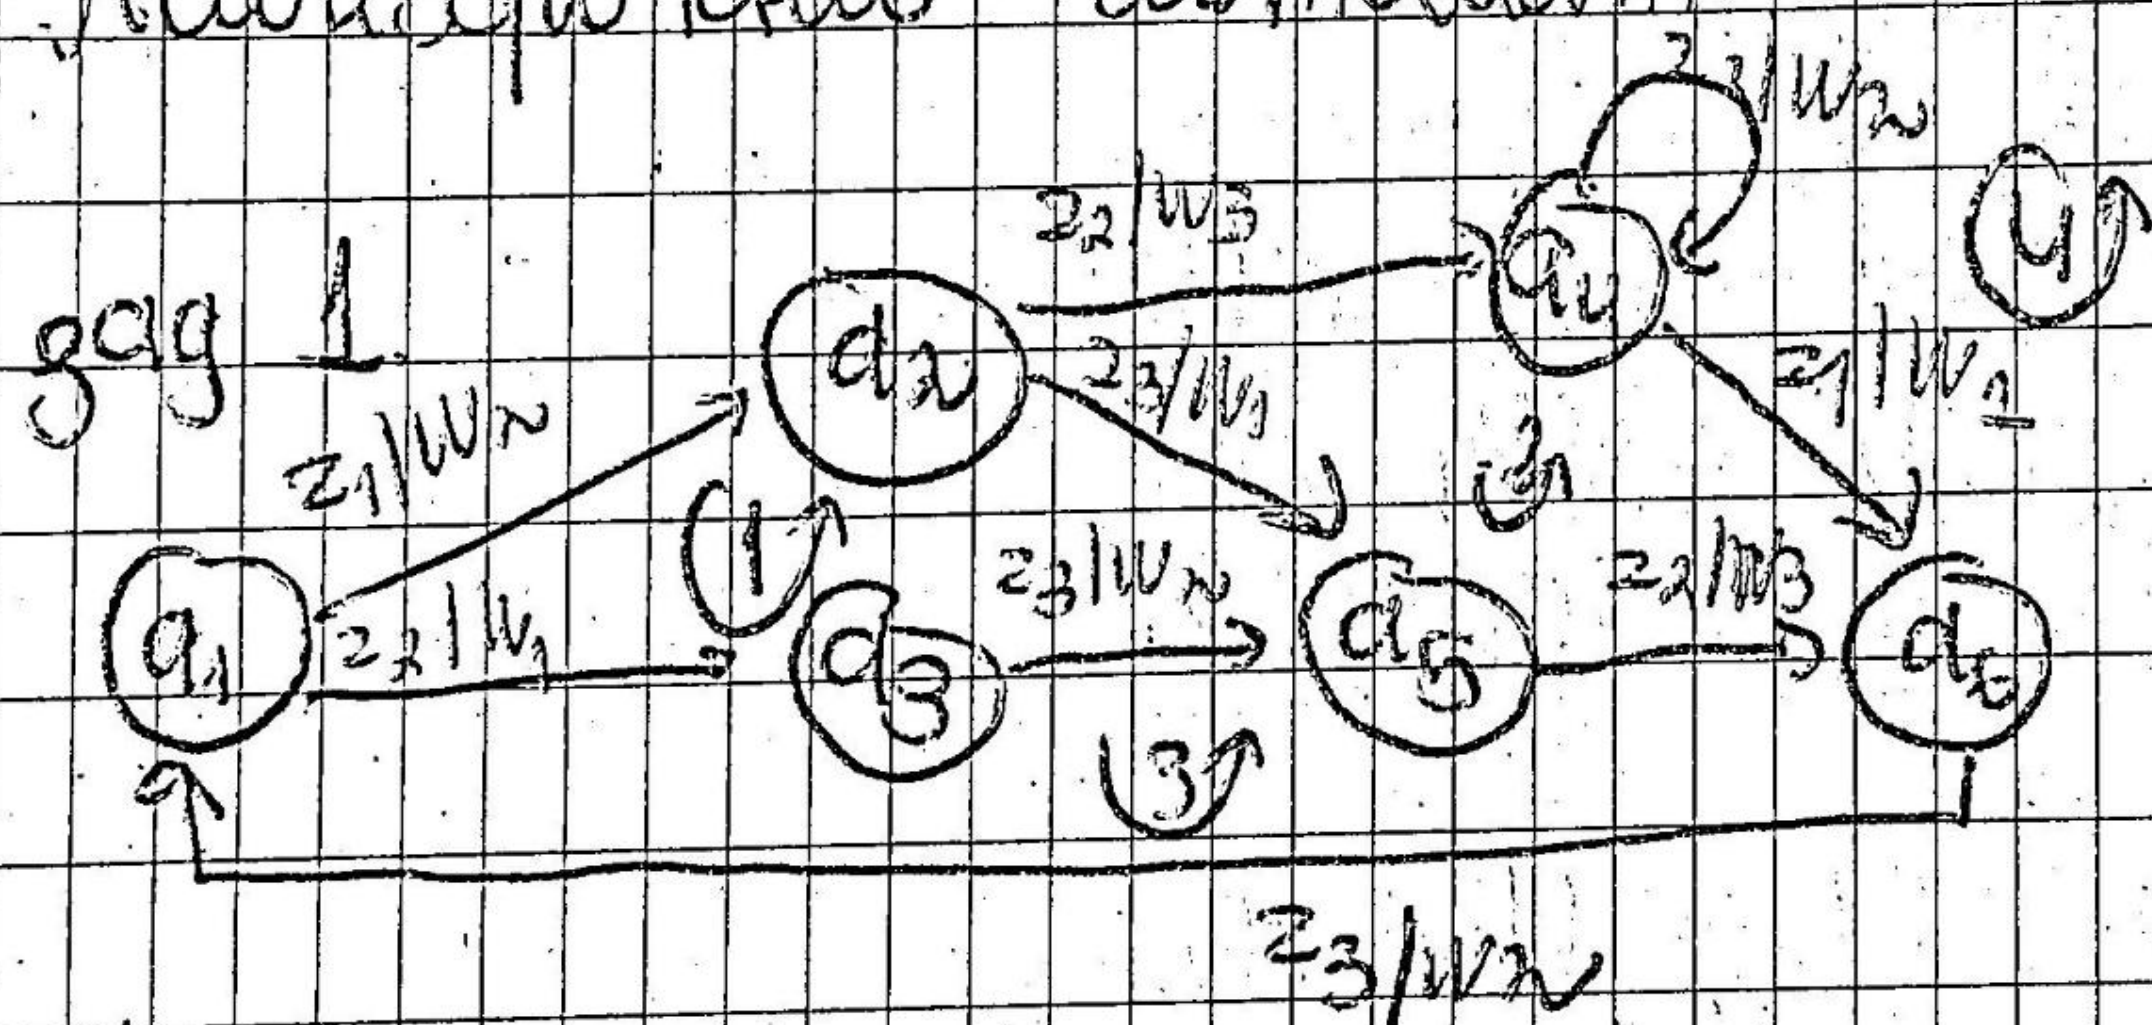 z3/w2
z2/w3
4
a4
gag 1
a2
z3/w1
z1/w1
z1/w2
2
1
z3/w2
z2/w3
a1
z2/w1
a3
a5
a6
3
z3/w2